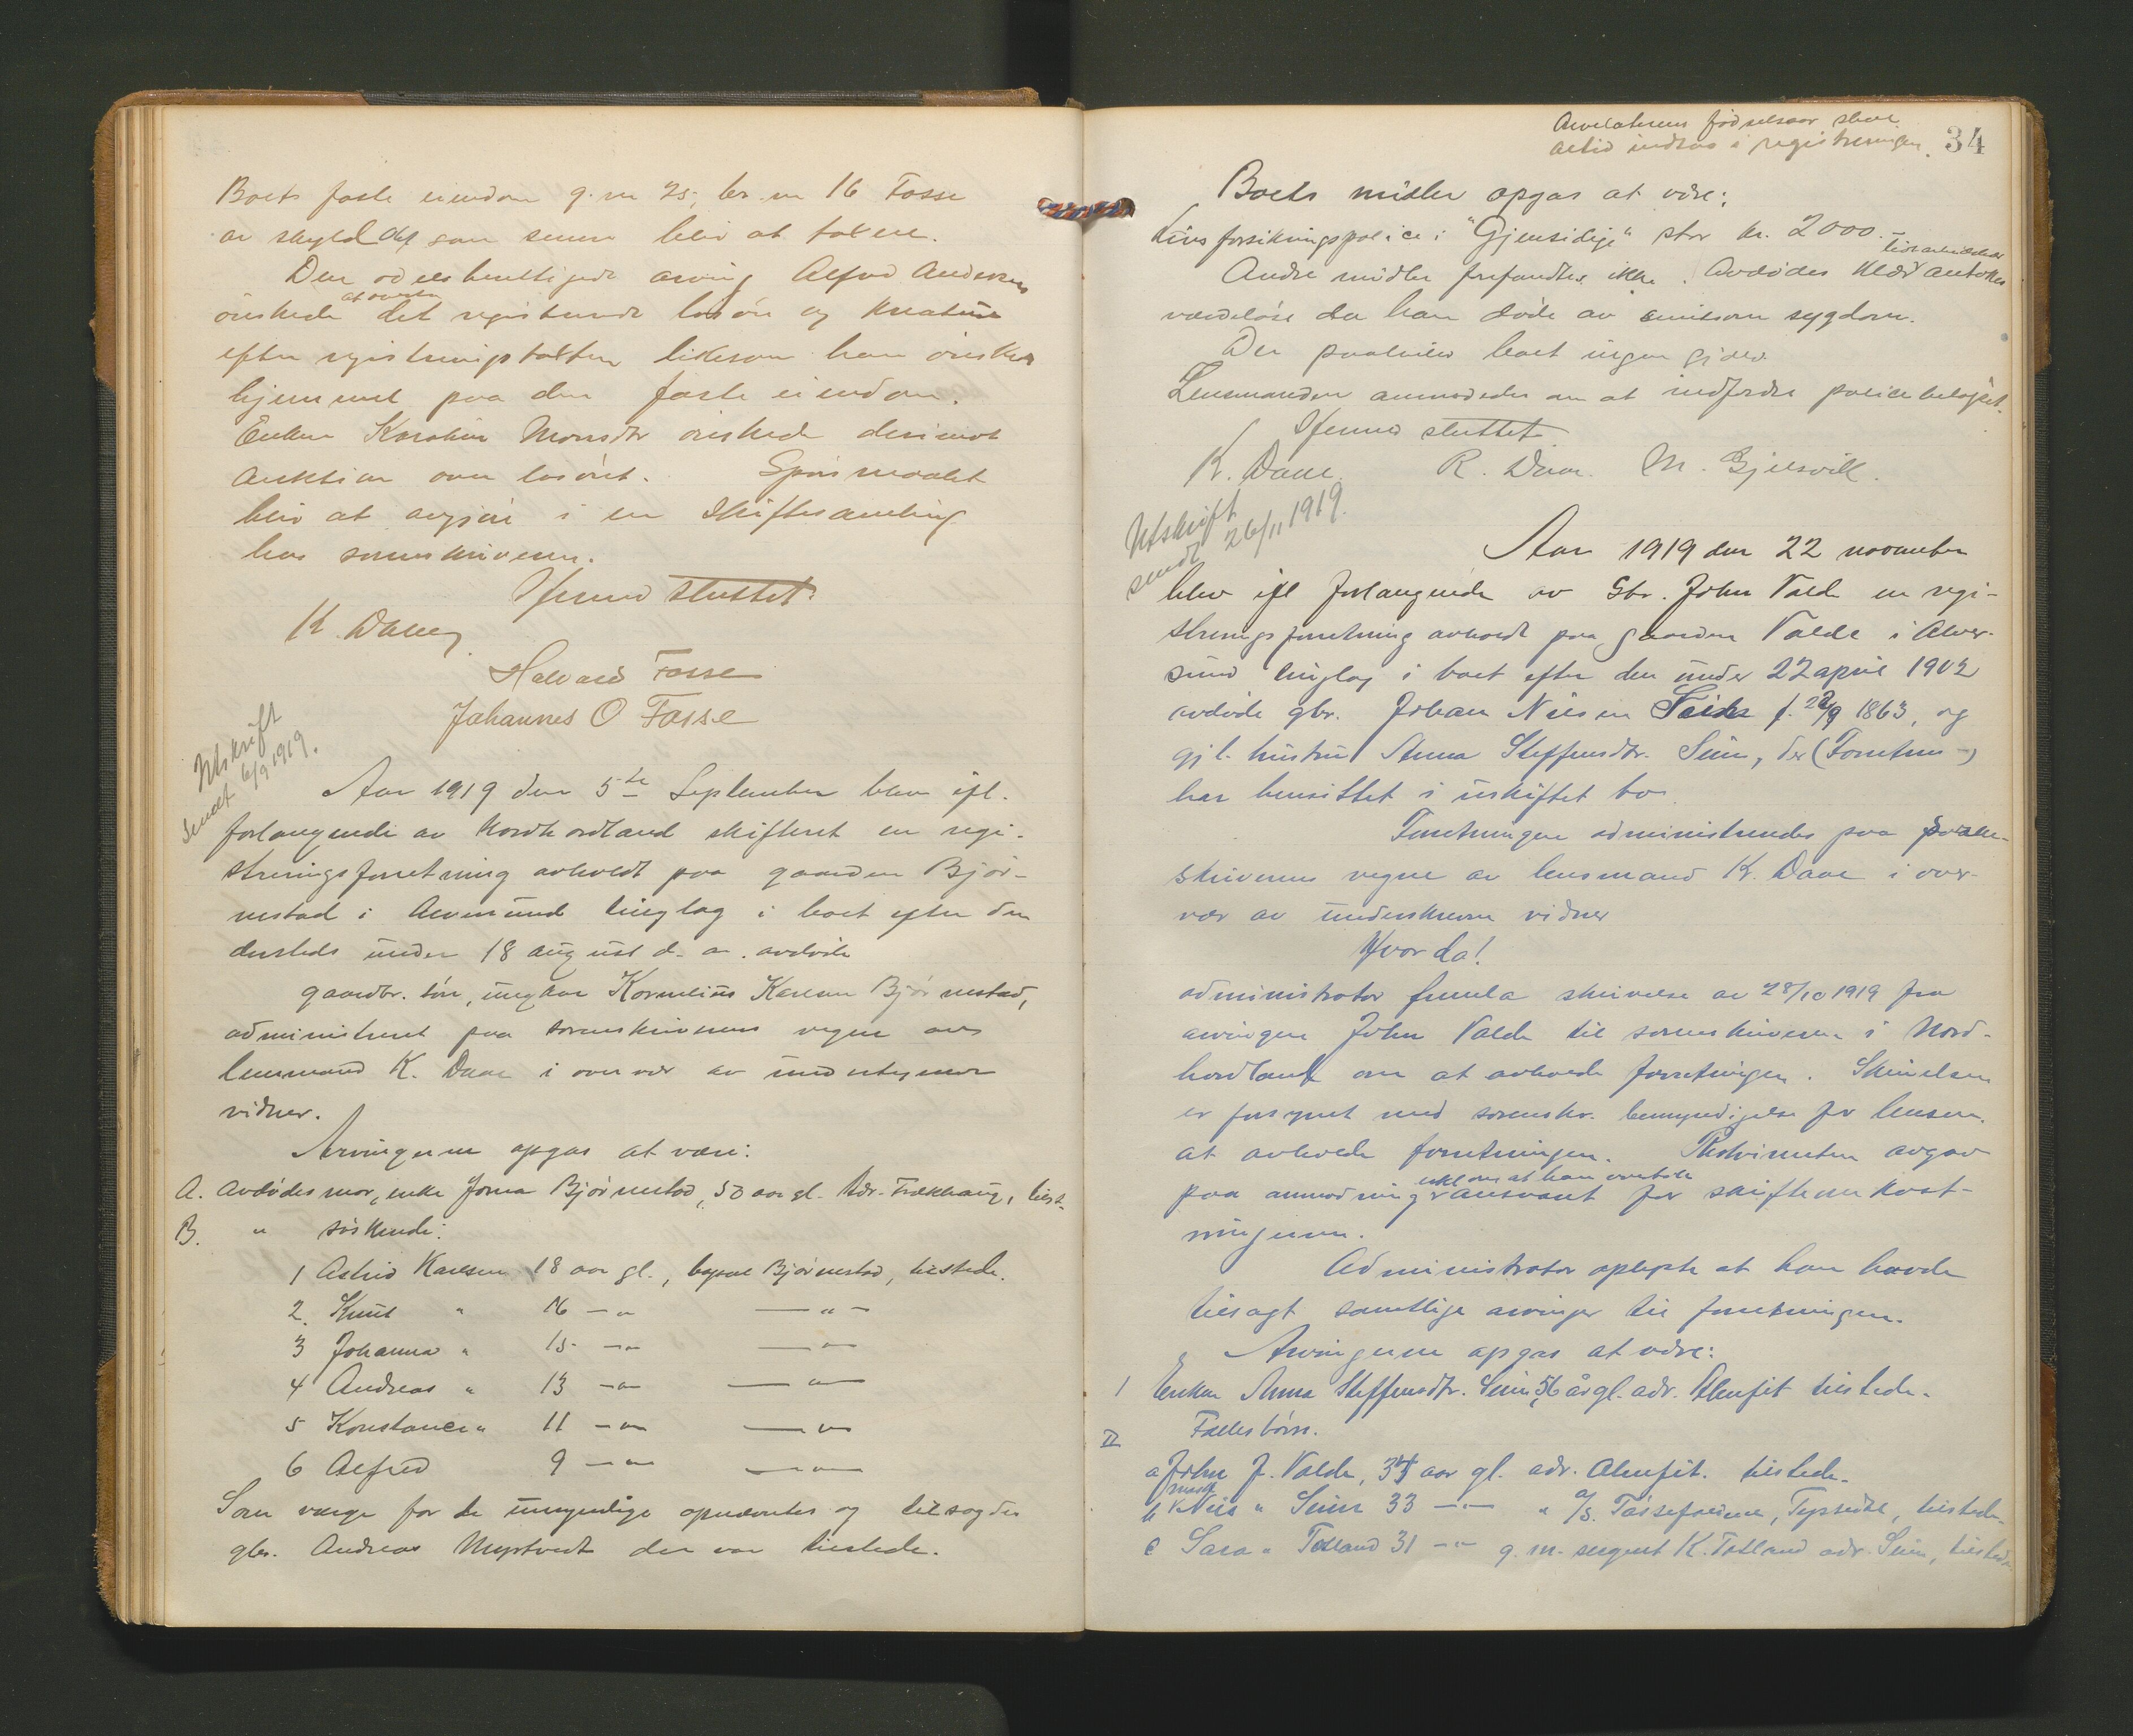 Boets faste eiendom g. nr 25, br. nr 16 Fosse
av skyld som senere blir at taxere.
Den odelsberettigede arving Alfred Andersen
at overta
ønskede det registrerede løsøre og kreature
efter registreringstakten likesom han ønsker
hjemmel paa den faste eiendom.
Enken Karoline Monsdtr ønskede derimot
auktion over løsøret. Spørsmaalet
blir at avgjøre i en skiftesamling
hos sorenskriveren.
Hermed sluttet.
K. Daae
Halvard Fosse
Johannes O Fosse
Utskrift
sendt 6/9 1919.
Aar 1919 den 5te September blev ifl.
forlangende av Nordhordland skifteret en regi-
streringsforretning avholdt paa gaarden Bjør-
nestad i Alversund tinglag i boet efter den
dersteds under 18 august d. a. avdøde
gaardbr. søn, ungkar Kornelius Karlsen Bjørnestad,
administreret paa sorenskriverens vegne av
lensmand K. Daae i overvær av undertegnede
vidner.
Arvingerne opgas at være:
A. Avdødes mor, enke Joma Bjørnestad, 50 aar gl. Adr. Frekhaug, tilst.
B. " søskende:
1 Astrid Karlsen 18 aar gl., bopæl Bjørnestad, tilstede.
2. Knut " 16 — " — " —
3 Johanna " 15 — " — " —
4 Andreas " 13 — " — " —
5 Konstance " 11 — " — " —
6 Alfred 9 — " — " —
Som værge for de umyndige opnævntes og tilsagdes
gbr. Andreas Myrtvedt der var tilstede.
Arvelaterens fødselsaar skal
altid indtas i registreringen.
34
Boets midler opgas at være:
Livsforsikringspolice i "Gjensidige" stor kr. 2000.-
Andre midler forfandtes ikke. Avdødes klær antokes
værdiløse da han døde av smitsom sygdom.
Der paahviler boet ingen gjæld.
Lensmanden anmodedes om at indfordre policebeløpet.
Hermed sluttet.
K. Daae. R. Daae. M. Gjelsvik.
Utskrift
sendt 26/11 1919.
Aar 1919 den 22 november
blev ifl forlangende av Gbr. John Valde en regi-
streringsforretning avholdt paa gaarden Valde i Alver-
sund tinglag i boet efter den under 22 april 1902
avdøde gbr. Johan Nilsen Seim f. 9 1863, og
gjl. hustru Anna Steffensdtr. Seim, der
har hensittet i uskiftet bo.
Forretningen administreredes paa soren-
skriverens vegne av lensmand K. Daae i over-
vær av underskrevne vidner
Hvorda!
administrator fremla skrivelse av 28/10 1919 fra
arvingen John Valde til sorenskriveren i Nord-
hordland om at avholde forretningen. Skrivelsen
er forsynet med sorenskr. bemyndigelse for lensm.
at avholde forretningen. Rekvirenten avgav
erkl om at han overtok
paa anmodning ansvaret for skifteomkost-
ningerne.
Administrator oplyste at han havde
tilsagt samtlige arvinger til forretningen.
Arvingerne opgas at være:
I Enken Anna Steffensdtr. Seim, 56 år gl. adr. Alenfit tilstede.
II Fællesbørn.
a John J. Valde, aar gl. adr. Alenfit. tilstede.
b Nils " Seim 33 — " — " A/S. Tyssefaldene, Tyssedal, tilstede.
c Sara " Totland 31 — " — g. m. sergent K. Totland adr. Seim, tilstede